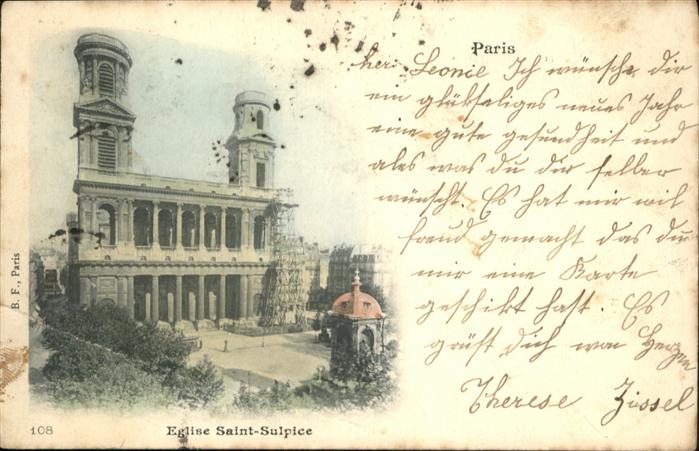 Paris
Leonie Ich wünsche dir
ein glükseliges neues Jahr
eine gute gesundheit und
ales was du dir selber
wünscht. Es hat mir vil
freud gemacht das du
mir eine Karte
geschikt hast. Es
grüst dich von Herzen
Therese Zissel
B. F., Paris
108
Eglise Saint-Sulpice